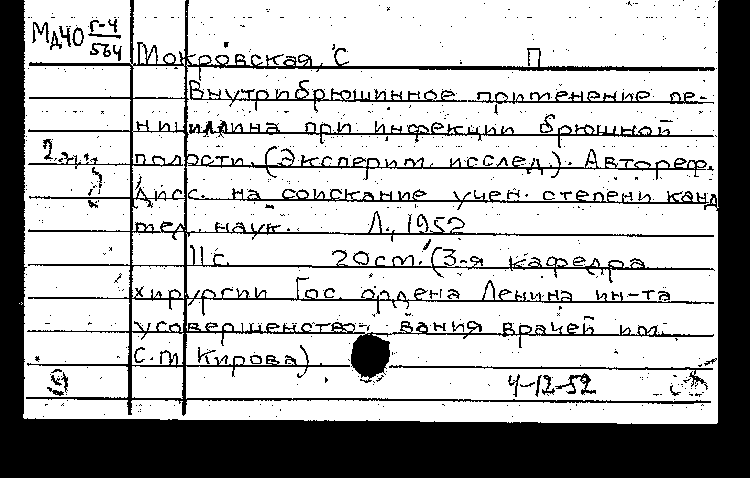 МдЧО Г-4/564
Мокровская, С П
Внутрибрюшинное применение пе-
нициллина при инфекции брюшной
полости. (Эксперим. исслед.). Автореф.
Дисс. на соискание учен. степени канд
мед. наук. Л., 1952
11 с. 20 см. (3-я кафедра
хирургии Гос. ордена Ленина ин-та
усовершенство- вания врачей им.
С.М Кирова).
9 4-12-52